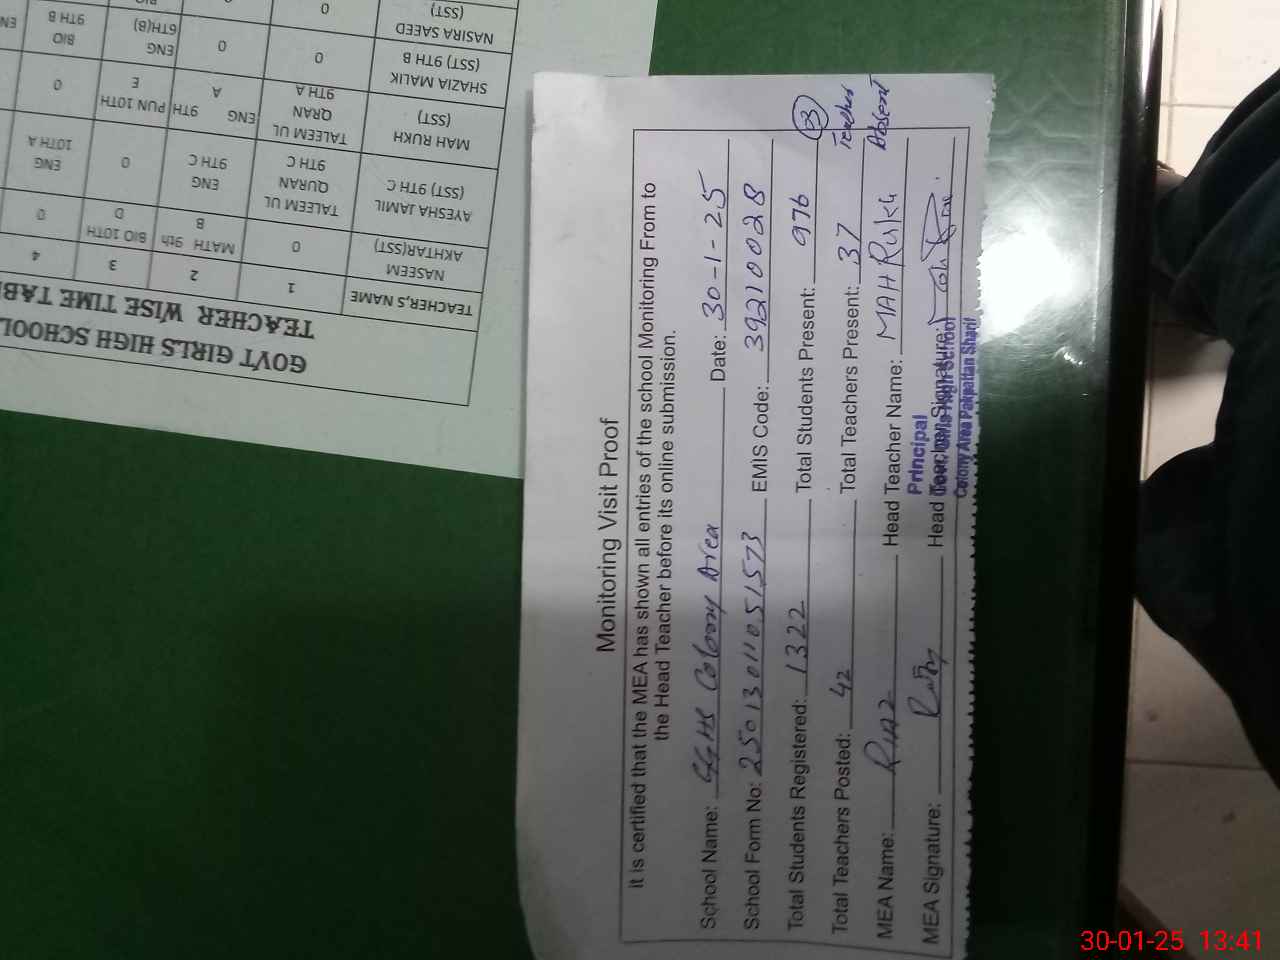 Monitoring Visit Proof
It is certified that the MEA has shown all entries of the school Monitoring From to
the Head Teacher before its online submission.
School Name: GGHS Colony Area Date: 30-1-25
School Form No: 25013011051573 EMIS Code: 39210028
Total Students Registered: 1322 Total Students Present: 976
Total Teachers Posted: 42 Total Teachers Present: 37
03 Teacher Absent
MEA Name: RIAZ Head Teacher Name: MAH Rukh
MEA Signature: Head Teacher Signature:
Principal
Govt. Girls High School
Colony Area Pakpattan Sharif
GOVT GIRLS HIGH SCHOOL
TEACHER WISE TIME TAB
TEACHER,S NAME 1 2 3 4
NASEEM AKHTAR(SST) 0 MATH 9th B BIO 10TH D 0
AYESHA JAMIL (SST) 9TH C TALEEM UL QURAN 9TH C ENG 9TH C 0 ENG 10TH A
MAH RUKH (SST) TALEEM UL QRAN 9TH A ENG 9TH A PUN 10TH E 0
SHAZIA MALIK (SST) 9TH B 0 0 ENG 6TH(B) BIO 9TH B
NASIRA SAEED (SST) 0
30-01-25 13:41